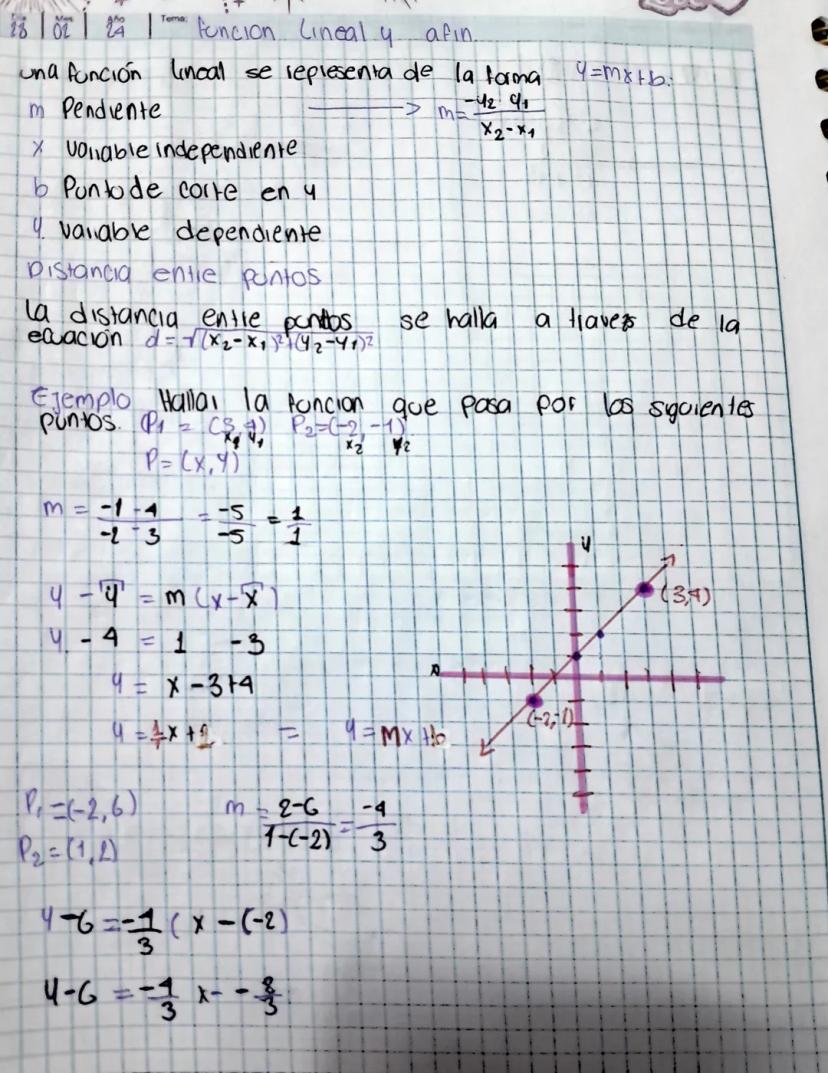 Día 28 | Mes 02 | Año 24 | Tema: función lineal y afin.
una función lineal se representa de la forma y=mx+b.
m Pendiente → m = -y2 y1 / x2-x1
x variable independiente
b Punto de corte en y
y. variable dependiente
Distancia entre puntos
la distancia entre puntos se halla a traves de la
ecuación d=√(x2-x1)²+(y2-y1)²
Ejemplo Hallar la funcion que pasa por los siguientes
puntos. P1 = (3,4) P2=(-2,-1)
x1 y1 x2 y2
P=(x,y)
m = -1-4 / -2-3 = -5 / -5 = 1 / 1
y - y = m(x-x)
y - 4 = 1 -3
y = x -3+4
y = 1/1 x + 1 = y = mx+b
y
x
(3,4)
(-2,-1)
P1=(-2,6) m = 2-6 / 1-(-2) = -4 / 3
P2=(1,2)
y-6 = -4/3 (x-(-2)
y-6 = -4/3 x - - 8/3